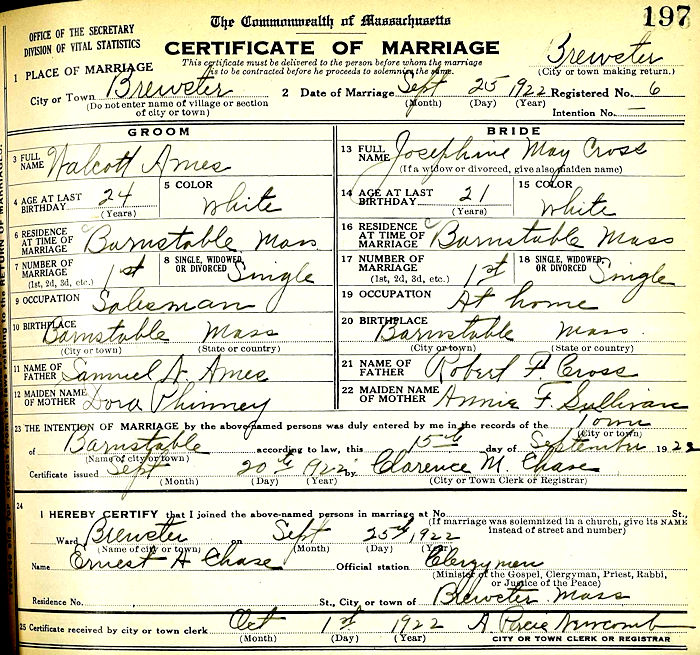 197
OFFICE OF THE SECRETARY
DIVISION OF VITAL STATISTICS
The Commonwealth of Massachusetts
CERTIFICATE OF MARRIAGE
This certificate must be delivered to the person before whom the marriage
is to be contracted before he proceeds to solemnize the same.
Brewster
(City or town making return.)
1 PLACE OF MARRIAGE
City or Town Brewster
(Do not enter name of village or section
of city or town)
2 Date of Marriage Sept 25 1922
(Month) (Day) (Year)
Registered No. 6
Intention No. —
GROOM
3 FULL NAME Walcott Ames
4 AGE AT LAST BIRTHDAY 24
(Years)
5 COLOR White
6 RESIDENCE AT TIME OF MARRIAGE Barnstable Mass
7 NUMBER OF MARRIAGE 1st
(1st, 2d, 3d, etc.)
8 SINGLE, WIDOWED OR DIVORCED Single
9 OCCUPATION Salesman
10 BIRTHPLACE Barnstable Mass
(City or town) (State or country)
11 NAME OF FATHER Samuel N. Ames
12 MAIDEN NAME OF MOTHER Dora Phinney
BRIDE
13 FULL NAME Josephine May Cross
(If a widow or divorced, give also maiden name)
14 AGE AT LAST BIRTHDAY 21
(Years)
15 COLOR White
16 RESIDENCE AT TIME OF MARRIAGE Barnstable Mass
17 NUMBER OF MARRIAGE 1st
(1st, 2d, 3d, etc.)
18 SINGLE, WIDOWED OR DIVORCED Single
19 OCCUPATION At home
20 BIRTHPLACE Barnstable Mass.
(City or town) (State or country)
21 NAME OF FATHER Robert F Cross
22 MAIDEN NAME OF MOTHER Annie F. Sullivan
23 THE INTENTION OF MARRIAGE by the above-named persons was duly entered by me in the records of the Town
(City or town)
of Barnstable according to law, this 15th day of September 1922
(Name of city or town)
Certificate issued Sept 20th 1922 by Clarence M. Chase
(Month) (Day) (Year) (City or Town Clerk of Registrar)
24 I HEREBY CERTIFY that I joined the above-named persons in marriage at No. St.,
(If marriage was solemnized in a church, give its NAME
instead of street and number)
Ward Brewster on Sept 25th, 1922
(Name of city or town) (Month) (Day) (Year)
Name Ernest A Chase Official station Clergyman
(Minister of the Gospel, Clergyman, Priest, Rabbi,
or Justice of the Peace)
Residence No. St., City or town of Brewster Mass
25 Certificate received by city or town clerk Oct 1st 1922 Newcomb
(Month) (Day) (Year) CITY OR TOWN CLERK OR REGISTRAR